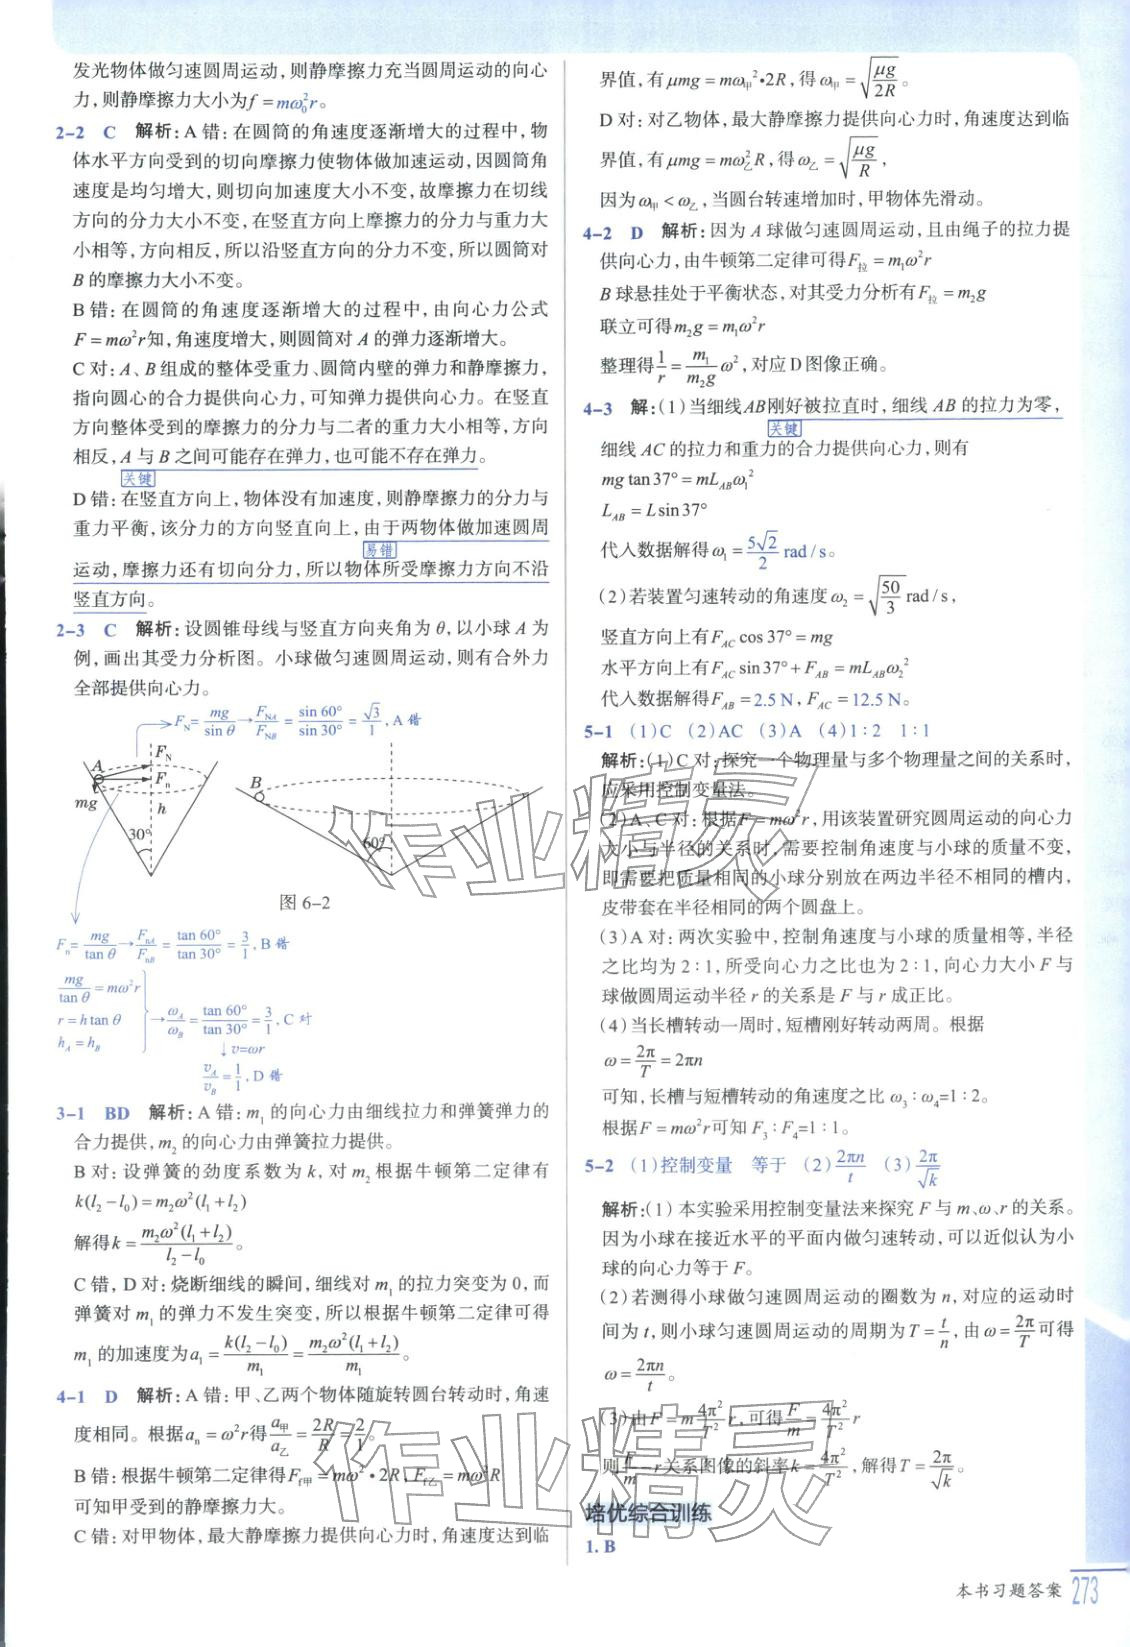 发光物体做匀速圆周运动，则静摩擦力充当圆周运动的向心
力，则静摩擦力大小为f=mω₀²r。
2-2 C 解析：A错：在圆筒的角速度逐渐增大的过程中，物
体水平方向受到的切向摩擦力使物体做加速运动，因圆筒角
速度是均匀增大，则切向加速度大小不变，故摩擦力在切线
方向的分力大小不变，在竖直方向上摩擦力的分力与重力大
小相等，方向相反，所以沿竖直方向的分力不变，所以圆筒对
B的摩擦力大小不变。
B错：在圆筒的角速度逐渐增大的过程中，由向心力公式
F=mω²r知，角速度增大，则圆筒对A的弹力逐渐增大。
C对：A、B组成的整体受重力、圆筒内壁的弹力和静摩擦力，
指向圆心的合力提供向心力，可知弹力提供向心力。在竖直
方向整体受到的摩擦力的分力与二者的重力大小相等，方向
相反，A与B之间可能存在弹力，也可能不存在弹力。
关键
D错：在竖直方向上，物体没有加速度，则静摩擦力的分力与
重力平衡，该分力的方向竖直向上，由于两物体做加速圆周
易错
运动，摩擦力还有切向分力，所以物体所受摩擦力方向不沿
竖直方向。
2-3 C 解析：设圆锥母线与竖直方向夹角为θ，以小球A为
例，画出其受力分析图。小球做匀速圆周运动，则有合外力
全部提供向心力。
F_N=mg/sinθ→F_NA/F_NB=sin60°/sin30°=√3/1，A错
A F_N
F_n
mg h
30°
B
60°
图6-2
F_n=mg/tanθ→F_nA/F_nB=tan60°/tan30°=3/1，B错
mg/tanθ=mω²r
r=htanθ
h_A=h_B
→ω_A/ω_B=tan60°/tan30°=3/1，C对
↓v=ωr
v_A/v_B=1/1，D错
3-1 BD 解析：A错：m₁的向心力由细线拉力和弹簧弹力的
合力提供，m₂的向心力由弹簧拉力提供。
B对：设弹簧的劲度系数为k，对m₂根据牛顿第二定律有
k(l₂-l₀)=m₂ω²(l₁+l₂)
解得k=m₂ω²(l₁+l₂)/(l₂-l₀)。
C错，D对：烧断细线的瞬间，细线对m₁的拉力突变为0，而
弹簧对m₁的弹力不发生突变，所以根据牛顿第二定律可得
m₁的加速度为a₁=k(l₂-l₀)/m₁=m₂ω²(l₁+l₂)/m₁。
4-1 D 解析：A错：甲、乙两个物体随旋转圆台转动时，角速
度相同。根据a_n=ω²r得a甲/a乙=2R/R=2/1。
B错：根据牛顿第二定律得F_f甲=mω²·2R，F_f乙=mω²R
可知甲受到的静摩擦力大。
C错：对甲物体，最大静摩擦力提供向心力时，角速度达到临
界值，有μmg=mω甲²·2R，得ω甲=√(μg/2R)。
D对：对乙物体，最大静摩擦力提供向心力时，角速度达到临
界值，有μmg=mω乙²R，得ω乙=√(μg/R)，
因为ω甲<ω乙，当圆台转速增加时，甲物体先滑动。
4-2 D 解析：因为A球做匀速圆周运动，且由绳子的拉力提
供向心力，由牛顿第二定律可得F拉=m₁ω²r
B球悬挂处于平衡状态，对其受力分析有F拉=m₂g
联立可得m₂g=m₁ω²r
整理得1/r=(m₁/m₂g)ω²，对应D图像正确。
4-3 解：(1)当细线AB刚好被拉直时，细线AB的拉力为零，
关键
细线AC的拉力和重力的合力提供向心力，则有
mgtan37°=mL_ABω₁²
L_AB=Lsin37°
代入数据解得ω₁=5√2/2 rad/s。
(2)若装置匀速转动的角速度ω₂=√(50/3) rad/s，
竖直方向上有F_AC cos37°=mg
水平方向上有F_AC sin37°+F_AB=mL_ABω₂²
代入数据解得F_AB=2.5N，F_AC=12.5N。
5-1 (1)C (2)AC (3)A (4)1∶2 1∶1
解析：(1)C对：探究一个物理量与多个物理量之间的关系时，
应采用控制变量法。
(2)A、C对：根据F=mω²r，用该装置研究圆周运动的向心力
大小与半径的关系时，需要控制角速度与小球的质量不变，
即需要把质量相同的小球分别放在两边半径不同的槽内，
皮带套在半径相同的两个圆盘上。
(3)A对：两次实验中，控制角速度与小球的质量相等，半径
之比均为2∶1，所受向心力之比也为2∶1，向心力大小F与
球做圆周运动半径r的关系是F与r成正比。
(4)当长槽转动一周时，短槽刚好转动两周。根据
ω=2π/T=2πn
可知，长槽与短槽转动的角速度之比ω₃∶ω₄=1∶2。
根据F=mω²r可知F₃∶F₄=1∶1。
5-2 (1)控制变量 等于 (2)2πn/t (3)2π/√k
解析：(1)本实验采用控制变量法来探究F与m、ω、r的关系。
因为小球在接近水平的平面内做匀速转动，可以近似认为小
球的向心力等于F。
(2)若测得小球做匀速圆周运动的圈数为n，对应的运动时
间为t，则小球匀速圆周运动的周期为T=t/n，由ω=2π/T可得
ω=2πn/t。
(3)由F=m(4π²/T²)r，可得F/m=(4π²/T²)r
则F/m-r关系图像的斜率k=4π²/T²，解得T=2π/√k。
培优综合训练
1.B
本书习题答案 273
作业精灵
作业精灵